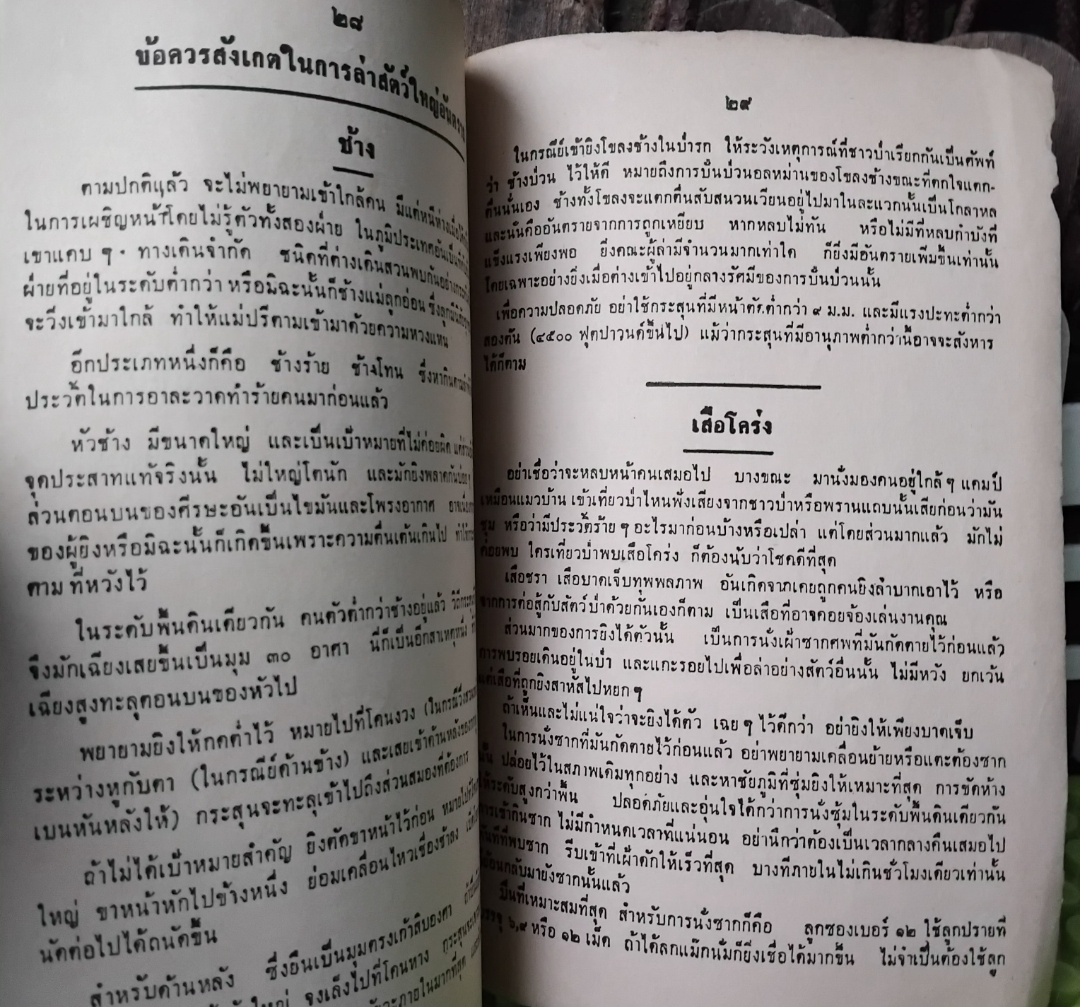 ๒๘
ข้อควรสังเกตในการล่าสัตว์ใหญ่อันตราย
ช้าง
ตามปกติแล้ว จะไม่พยายามเข้าใกล้คน มีแต่หนีห่าง
ในการเผชิญหน้าโดยไม่รู้ตัวทั้งสองฝ่าย ในภูมิประเทศอัน
เขาแคบ ๆ ทางเดินจำกัด ชนิดที่ต่างเดินสวนพบกัน
ฝ่ายที่อยู่ในระดับต่ำกว่า หรือมิฉะนั้นก็ช้างแม่ลูกอ่อน ซึ่งลูก
จะวิ่งเข้ามาใกล้ ทำให้แม่ปรี่ตามเข้ามาด้วยความหวงแหน
อีกประเภทหนึ่งก็คือ ช้างร้าย ช้างโทน ซึ่งหากิน
ประวัติในการอาละวาดทำร้ายคนมาก่อนแล้ว
หัวช้าง มีขนาดใหญ่ และเป็นเป้าหมายที่ไม่ค่อยผิด
จุดประสาทแท้จริงนั้น ไม่ใหญ่โตนัก และมักยิงพลาด
ส่วนตอนบนของศีรษะอันเป็นไขมันและโพรงอากาศ
ของผู้ยิงหรือมิฉะนั้นก็เกิดขึ้นเพราะความตื่นเต้นเกินไป
ตาม ที่หวังไว้
ในระดับพื้นดินเดียวกัน คนตัวต่ำกว่าช้างอยู่แล้ว
จึงมักเฉียงเสยขึ้นเป็นมุม ๓๐ อาศา นี่ก็เป็นอีกสาเหตุหนึ่ง
เฉียงสูงทะลุตอนบนของหัวไป
พยายามยิงให้กดต่ำไว้ หมายไปที่โคนงวง
ระหว่างหูกับตา (ในกรณีย์ด้านข้าง) และเสยเข้าด้านหลัง
เบนหันหลังให้) กระสุนจะทะลุเข้าไปถึงส่วนสมองที่ต้องการ
ถ้าไม่ได้เป้าหมายสำคัญ ยิงตัดขาหน้าไว้ก่อน
ใหญ่ ขาหน้าหักไปข้างหนึ่ง ย่อมเคลื่อนไหวเชื่องช้าลง
นัดต่อไปได้ถนัดขึ้น
สำหรับด้านหลัง ซึ่งยืนเป็นมุมตรงเก้าสิบองศา
จงเล็งไปที่โคนหาง
๒๙
ในกรณีย์เข้ายิงโขลงช้างในป่ารก ให้ระวังเหตุการณ์ที่ชาวป่าเรียกกันเป็นศัพท์
ว่า ช้างป่วน ไว้ให้ดี หมายถึงการปั่นป่วนอลหม่านของโขลงช้างขณะที่ตกใจแตก-
ตื่นนั่นเอง ช้างทั้งโขลงจะแตกตื่นสับสนวนเวียนอยู่ไปมาในละแวกนั้นเป็นโกลาหล
และนั่นคืออันตรายจากการถูกเหยียบ หากหลบไม่ทัน หรือไม่มีที่หลบกำบังที่
แข็งแรงเพียงพอ ยิ่งคณะผู้ล่ามีจำนวนมากเท่าใด ก็ยิ่งมีอันตรายเพิ่มขึ้นเท่านั้น
โดยเฉพาะอย่างยิ่งเมื่อต่างเข้าไปอยู่กลางรัศมีของการปั่นป่วนนั้น
เพื่อความปลอดภัย อย่าใช้กระสุนที่มีหน้าตัดต่ำกว่า ๙ ม.ม. และมีแรงปะทะต่ำกว่า
สองตัน (๔๕๐๐ ฟุตปาวนด์ขึ้นไป) แม้ว่ากระสุนที่มีอานุภาพต่ำกว่านี้อาจจะสังหาร
ได้ก็ตาม
เสือโคร่ง
อย่าเชื่อว่าจะหลบหน้าคนเสมอไป บางขณะ มานั่งมองคนอยู่ใกล้ ๆ แคมป์
เหมือนแมวบ้าน เข้าเที่ยวป่าไหนฟังเสียงจากชาวป่าหรือพรานแถบนั้นเสียก่อนว่ามัน
ชุม หรือว่ามีประวัติร้าย ๆ อะไรมาก่อนบ้างหรือเปล่า แต่โดยส่วนมากแล้ว มักไม่
ค่อยพบ ใครเที่ยวป่าพบเสือโคร่ง ก็ต้องนับว่าโชคดีที่สุด
เสือชรา เสือบาดเจ็บทุพพลภาพ อันเกิดจากเคยถูกคนยิงลำบากเอาไว้ หรือ
จากการต่อสู้กับสัตว์ป่าด้วยกันเองก็ตาม เป็นเสือที่อาจคอยจ้องเล่นงานคุณ
ส่วนมากของการยิงได้ตัวนั้น เป็นการนั่งเฝ้าซากศพที่มันกัดตายไว้ก่อนแล้ว
การพบรอยเดินอยู่ในป่า และแกะรอยไปเพื่อล่าอย่างสัตว์อื่นนั้น ไม่มีหวัง ยกเว้น
แต่เสือที่ถูกยิงสาหัสไปหยก ๆ
ถ้าเห็นและไม่แน่ใจว่าจะยิงได้ตัว เฉย ๆ ไว้ดีกว่า อย่ายิงให้เพียงบาดเจ็บ
ในการนั่งซากที่มันกัดตายไว้ก่อนแล้ว อย่าพยายามเคลื่อนย้ายหรือแตะต้องซาก
นั้น ปล่อยไว้ในสภาพเดิมทุกอย่าง และหาชัยภูมิที่ซุ่มยิงให้เหมาะที่สุด การขัดห้าง
ให้ระดับสูงกว่าพื้น ปลอดภัยและอุ่นใจได้กว่าการนั่งซุ้มในระดับพื้นดินเดียวกัน
การเข้ากินซาก ไม่มีกำหนดเวลาที่แน่นอน อย่านึกว่าต้องเป็นเวลากลางคืนเสมอไป
ทันทีที่พบซาก รีบเข้าที่เฝ้าดักให้เร็วที่สุด บางทีภายในไม่เกินชั่วโมงเดียวเท่านั้น
ย้อนกลับมายังซากนั้นแล้ว
ปืนที่เหมาะสมที่สุด สำหรับการนั่งซากก็คือ ลูกซองเบอร์ ๑๒ ใช้ลูกปรายที่
บรรจุ ๖,๙ หรือ ๑๒ เม็ด ถ้าได้ลูกแม๊กนั่มก็ยิ่งเชื่อได้มากขึ้น ไม่จำเป็นต้องใช้ลูก